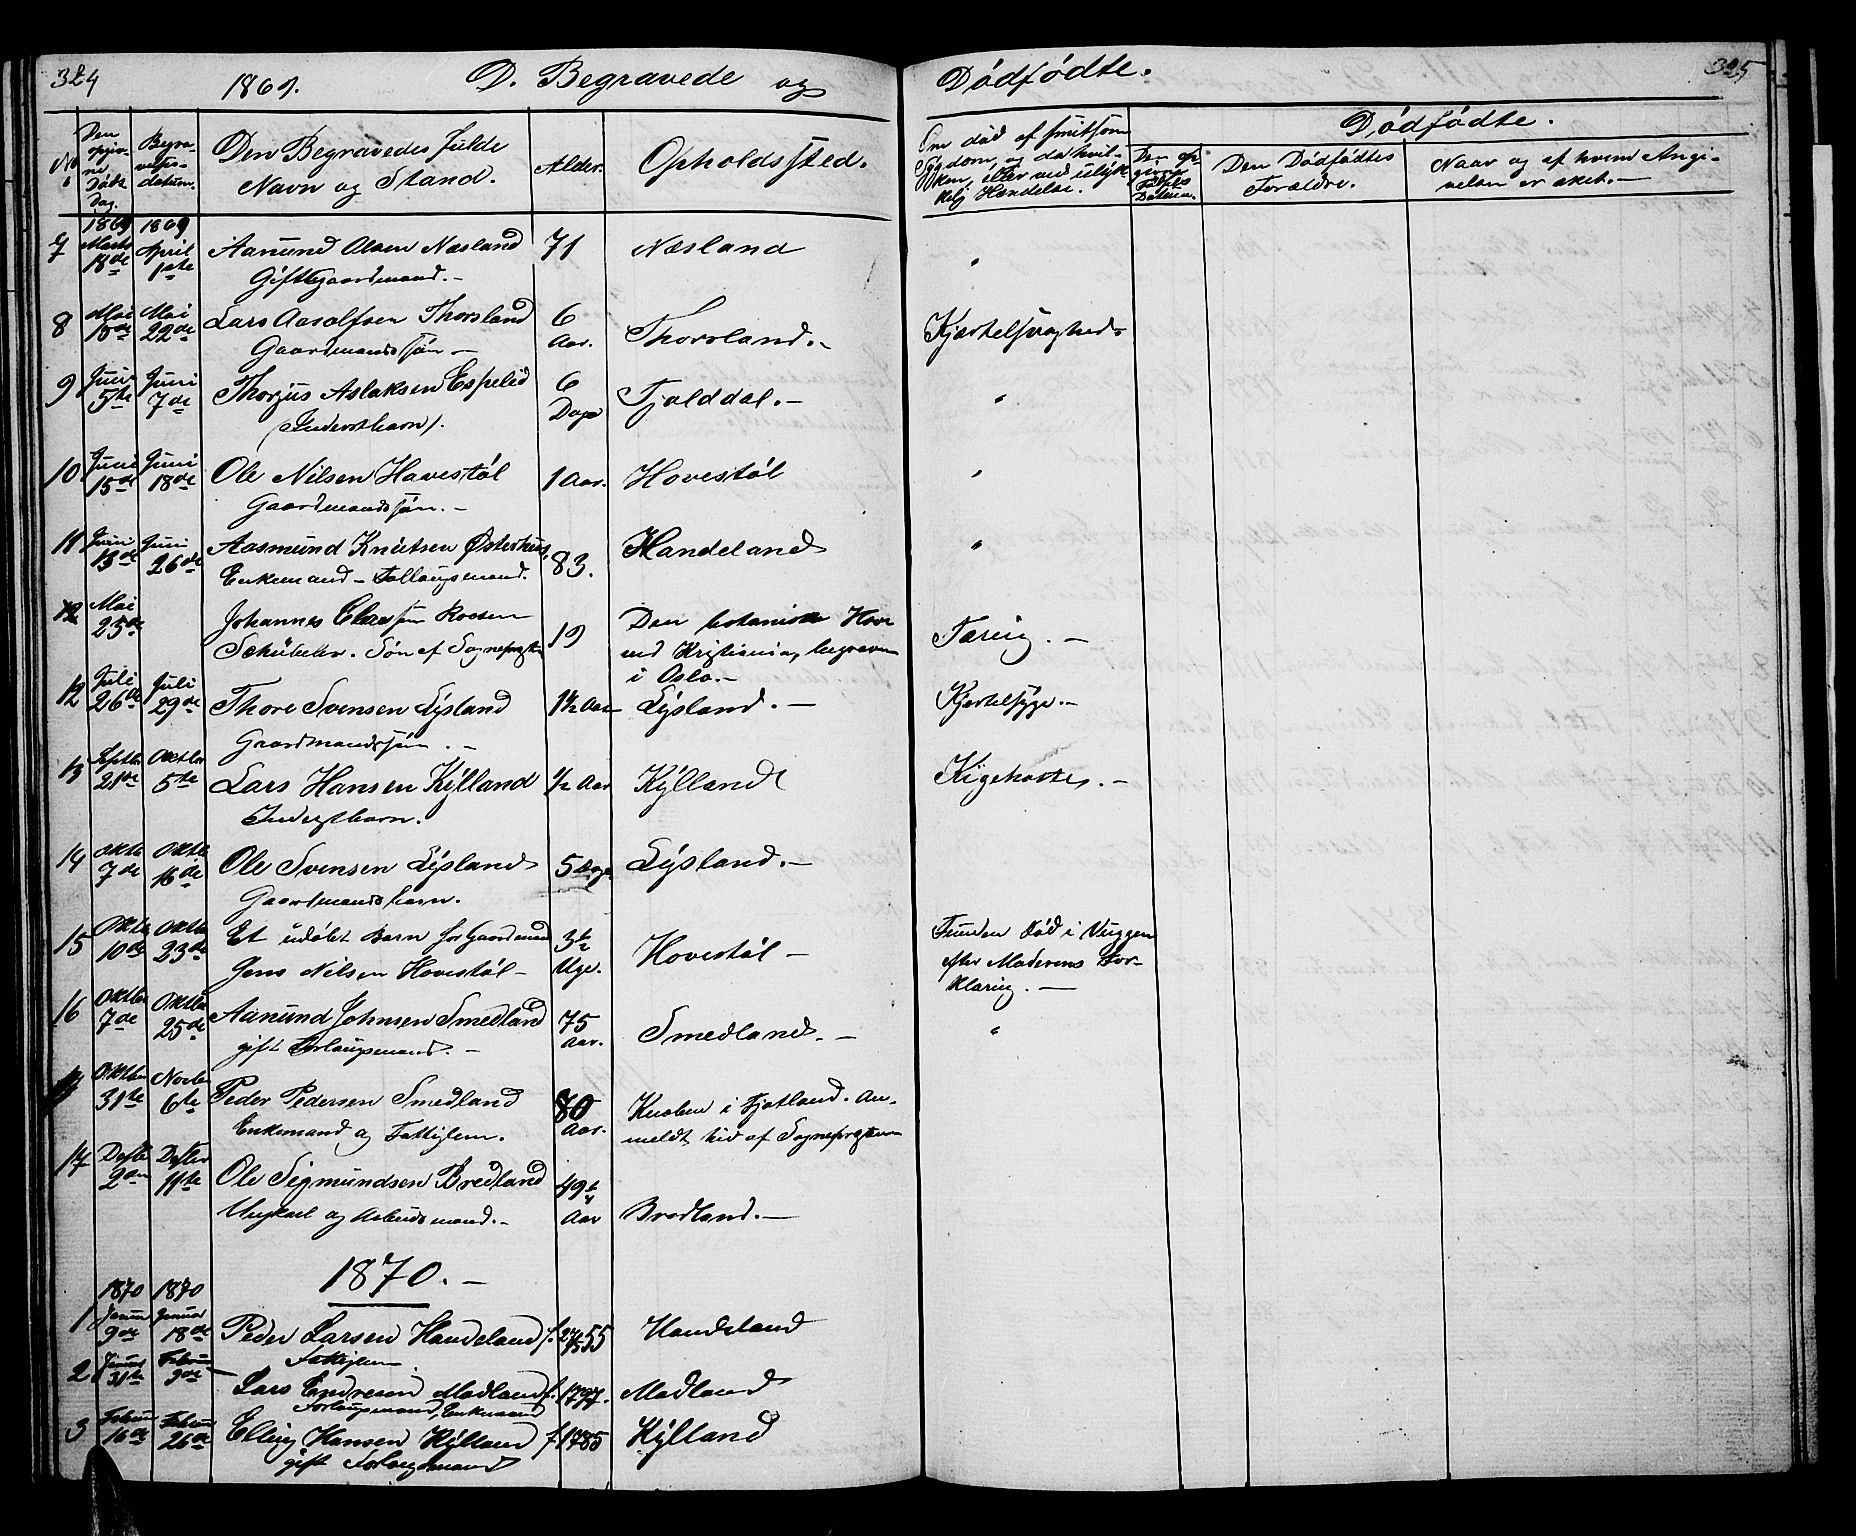 324 1869. D. Begravede og Dødfødte. 325
No Den opgivne Døds Dag. Begravelsesdatum. Den Begravedes fulde Navn og Stand. Alder. Opholdssted. Om død af smitsom Sygdom, og da hvilken, eller ved ulykkelig Hændelse. Dødfødte.
Den Dødfødtes Forældre. Naar og af hvem Angivelsen er skeet.
1869 1869
7 Marts 18de April 1ste Aanund Olsen Næsland 71 Næsland "
Gift Gaardmand.
8 Mai 18de Mai 22de Lars Aasolfsen Thorsland 6 Aar. Thorsland. Kjertelsvaghed.
Gaardmandssøn.
9 Juni 5te Juni 7de Thorjus Aslaksen Espelid 6 Dage Tjalddal. "
(Inderstbarn).
10 Juni 15de Juni 18de Ole Nilsen Hovestøl 1 Aar. Hovestøl "
Gaardmandssøn.
11 Juni 13de Juni 26de Aasmund Knutsen Østerhus 83. Handeland "
Enkemand - Follaugsmand.
12 Mai 25de Johannes 19 Den botaniske Have Tæring.
Schübeler. Søn af Sognepræsten ved Kristiania, begraven
i Oslo.
12 Juli 26de Juli 29de Thore Svensen Lysland 1½ Aar Lysland. Kjertelsyge.
Gaardmandssøn.
13 Septbr 21de Oktbr 5te Lars Hansen Kylland ½ Aar Kylland Kighoste.
Inderstbarn.
14 Oktbr 7de Oktb 16de Ole Svensen Lysland 5 Lysland.
Gaardmandsbarn.
15 Oktbr 10de Oktbr 23de Et udøbt Barn for Gaardmand 3½ Uge. Hovestøl Funden død i Vuggen
Jens Nilsen Hovestøl efter Moderens For-
klaring.
16 Oktbr 7de Oktbr 25de Aanund Johnsen Smedland 75 Aar. Smedland. "
gift Forlaugsmand.
Oktbr 31te Novbr 6te Peder Pedersen Smedland 80 Aar. Knaben i Fjotland. An-
Enkemand og Fattiglem. meldt hid af Sognepræsten
17 Desbr 2den Desbr 11te Ole Sigmundsen Bredland 49¼ Aar Bredland.
Ungkarl og Arbeidsmand.
1870.
1870 1870
1 Januar 9de Januar 18de Peder Larsen Handeland f. 55 Handeland
Fattiglem
2 Januar 31te Februar 9de Lars Endresen Madland f. 1797. Madland
Forlaugsmand, Enkemand
3 Februar 16de Februar 26de Elling Hansen Kylland f. 1785 Kylland
gift Forlaugsmand